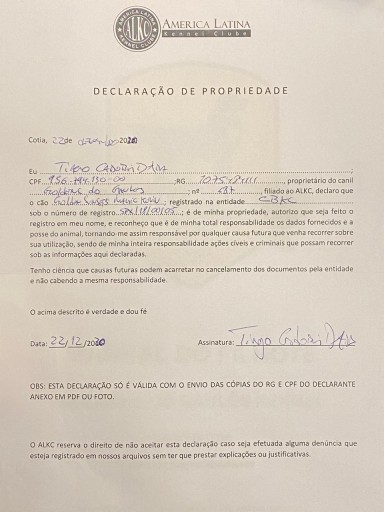 AMERICA LATINA KENNEL CLUBE
ALKC
AMERICA LATINA
Kennel Clube
DECLARAÇÃO DE PROPRIEDADE
Cotia, 22 de dezembro 2020
Eu Tiago
CPF RG , proprietário do canil
nº , filiado ao ALKC, declaro que
o cão ; registrado na entidade CBKC
sob o número de registro ; é de minha propriedade, autorizo que seja feito o
registro em meu nome, e reconheço que é de minha total responsabilidade os dados fornecidos e a
posse do animal, tornando-me assim responsável por qualquer causa futura que venha recorrer sobre
sua utilização, sendo de minha inteira responsabilidade ações cíveis e criminais que possam recorrer
sob as informações aqui declaradas.
Tenho ciência que causas futuras podem acarretar no cancelamento dos documentos pela entidade
e não cabendo a mesma responsabilidade.
O acima descrito é verdade e dou fé
Data: 22/12/2020 Assinatura: Tiago
OBS: ESTA DECLARAÇÃO SÓ É VÁLIDA COM O ENVIO DAS CÓPIAS DO RG E CPF DO DECLARANTE
ANEXO EM PDF OU FOTO.
O ALKC reserva o direito de não aceitar esta declaração caso seja efetuada alguma denúncia que
esteja registrado em nossos arquivos sem ter que prestar explicações ou justificativas.